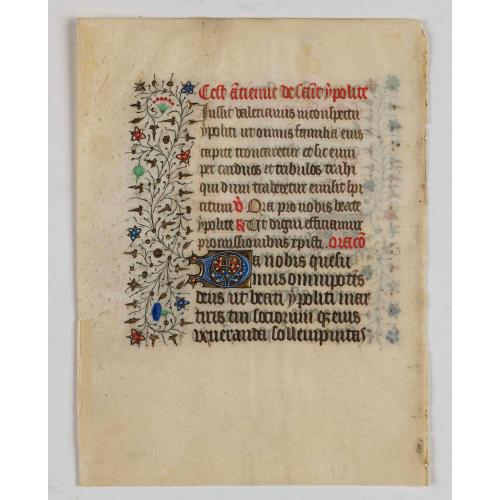 Cest ātienne de saīt ypolite
Iussit valerianus in conspectu
ypoliti ut omnis familia eius
capite troncaretur et sic eum
per carduos et tribulos trahi
qui dum traheretur emisit spi
ritum V Ora pro nobis beate
ypolite R Ut digni efficiamur
promissionibus xpisti. Oracō
Da nobis quesu
mus omnipotēs
deus ut beati ypoliti mar
tiris tui sociorum qȝ eius
veneranda sollempnitas